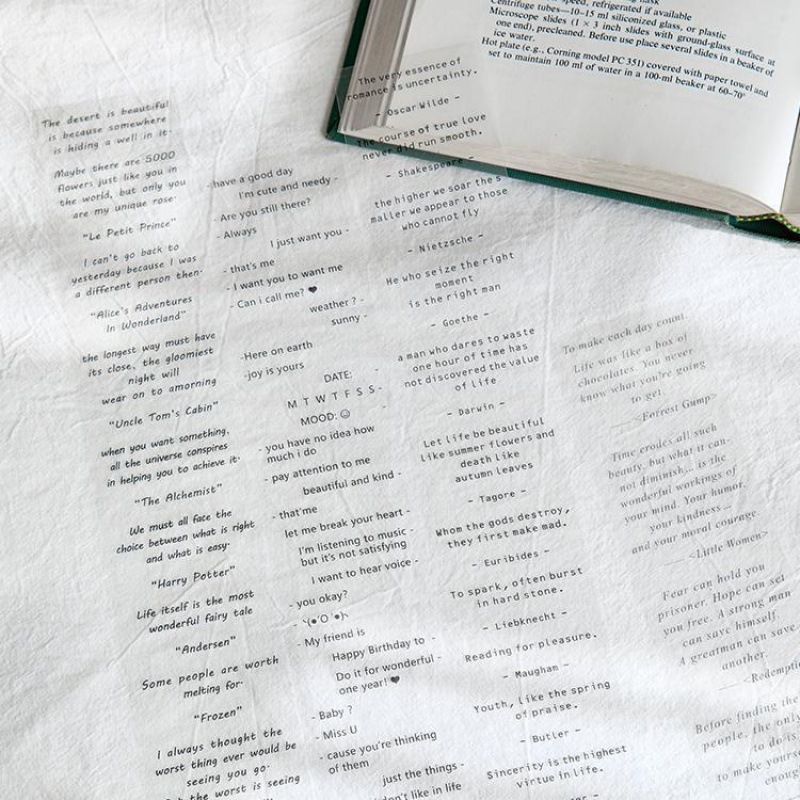 The desert is beautiful
is because somewhere
is hiding a well in it.
Maybe there are 5000
flowers just like you in
the world, but only you
are my unique rose.
"Le Petit Prince"
I can't go back to
yesterday because I was
a different person then.
"Alice's Adventures
In Wonderland"
the longest way must have
its close, the gloomiest
night will
wear on to amorning
"Uncle Tom's Cabin"
when you want something,
all the universe conspires
in helping you to achieve it.
"The Alchemist"
We must all face the
choice between what is right
and what is easy.
"Harry Potter"
Life itself is the most
wonderful fairy tale
"Andersen"
Some people are worth
melting for.
"Frozen"
I always thought the
worst thing ever would be
seeing you go.
the worst is seeing
- have a good day
I'm cute and needy -
- Are you still there?
- Always
I just want you -
- that's me
- I want you to want me
- Can i call me? ❤
weather ? -
sunny -
-Here on earth
-joy is yours
DATE:
M T W T F S S
MOOD: ☺
- you have no idea how
much i do
- pay attention to me
beautiful and kind -
- that'me
let me break your heart -
I'm listening to music -
but it's not satisfying
I want to hear voice -
- you okay?
- My friend is
Happy Birthday to -
Do it for wonderful -
one year! ❤
- Baby ?
- Miss U
- cause you're thinking
of them
just the things -
don't like in life
The very essence of
romance is uncertainty.
- Oscar Wilde -
the course of true love
never did run smooth.
- Shakespeare -
the higher we soar the s
maller we appear to those
who cannot fly
- Nietzsche -
He who seize the right
moment
is the right man
- Goethe -
a man who dares to waste
one hour of time has
not discovered the value
of life
- Darwin -
Let life be beautiful
like summer flowers and
death like
autumn leaves
- Tagore -
Whom the gods destroy,
they first make mad.
- Euribides -
To spark, often burst
in hard stone.
- Liebknecht -
Reading for pleasure.
- Maugham -
Youth, like the spring
of praise.
- Butler -
Sincerity is the highest
virtue in life.
To make each day count.
Life was like a box of
chocolates. You never
know what you're going
to get.
——<Forrest Gump>
Time erodes all such
beauty, but what it can-
not diminish... is the
wonderful workings of
your mind. Your humor,
your kindness...
and your moral courage.
—— <Little Women>
Fear can hold you
prisoner. Hope can set
you free. A strong man
can save himself.
A greatman can save
another.
——<Redemption
Before finding the
people, the only
to do is
make yourse
enoug
speed, refrigerated if available
Centrifuge tubes—10–15 ml siliconized glass, or plastic
Microscope slides (1 × 3 inch slides with ground-glass surface at
one end), precleaned. Before use place several slides in a beaker of
ice water.
Hot plate (e.g., Corning model PC 351) covered with paper towel and
set to maintain 100 ml of water in a 100-ml beaker at 60–70°